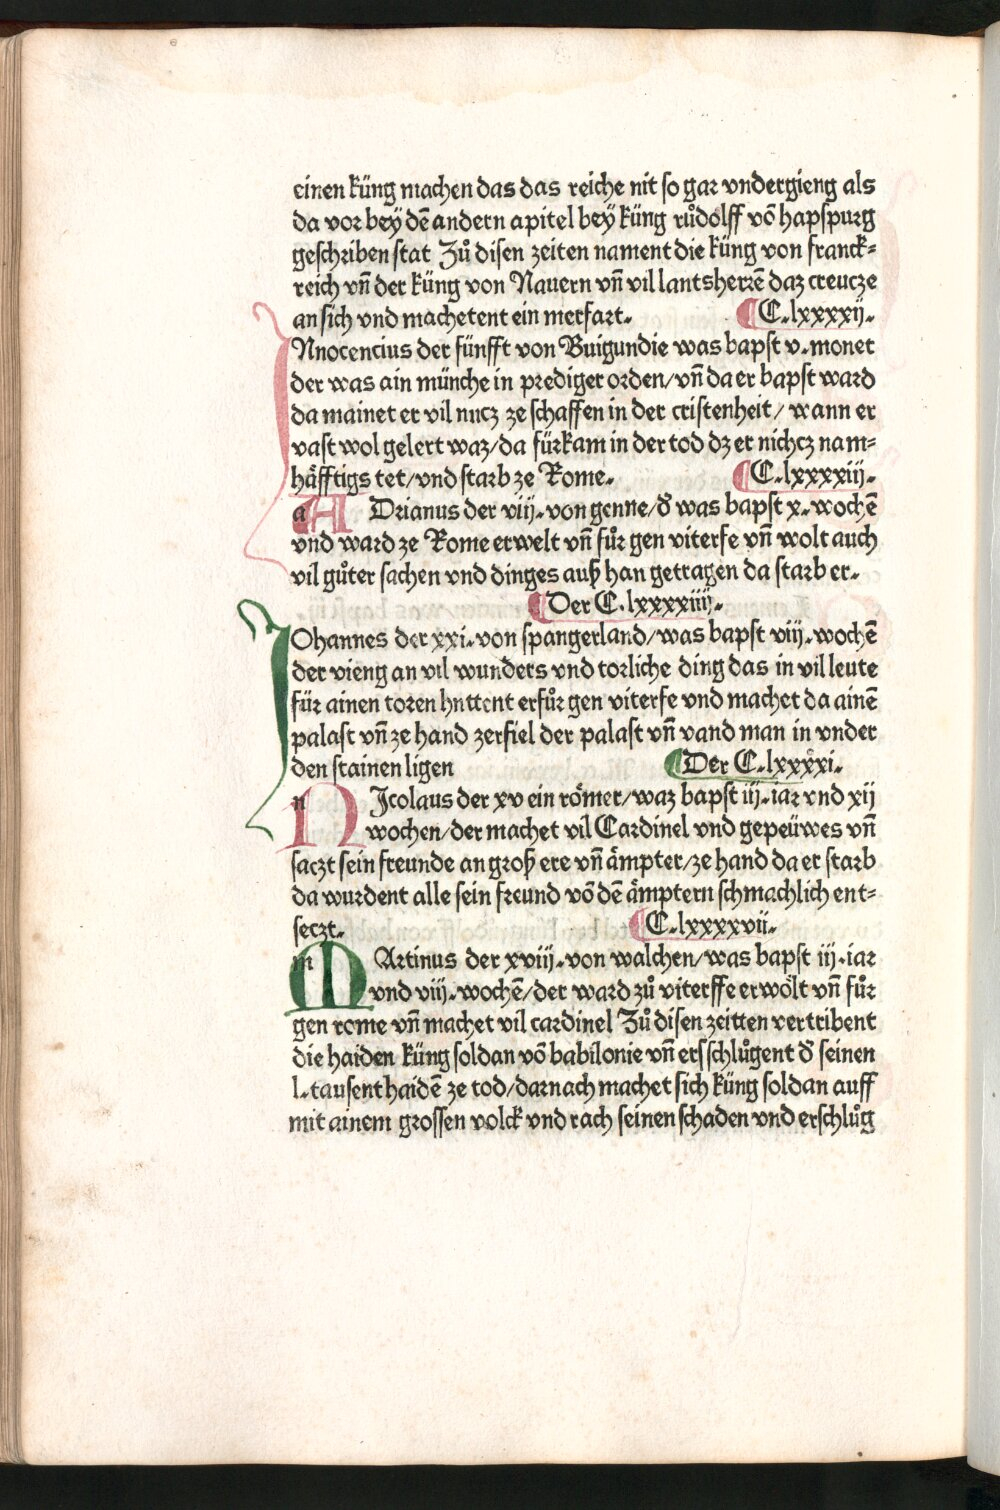 einen küng machen das das reiche nit so gar vndergieng als
da vor bey dē andern apitel bey küng růdolff vō hapspurg
geschriben stat Zů disen zeiten nament die küng von franck⸗
reich vñ der küng von Nauern vñ vil lantsherrē daz creucze
an sich vnd machetent ein merfart. C.lxxxxij.
INnocencius der fünfft von Buigundie was bapst v.monet
der was ain münche in prediger orden/vñ da er bapst ward
da mainet er vil nucz ze schaffen in der cristenheit/ wann er
vast wol gelert waz/da fürkam in der tod dz er nichcz nam⸗
häfftigs tet/vnd starb ze Rome. C.lxxxxiij.
ADrianus der viij.von genne/ð was bapst x.wochē
vnd ward ze Rome erwelt vñ fůr gen viterfe vñ wolt auch
vil gůter sachen vnd dinges auß han getragen da starb er.
Der C.lxxxxiiij.
IOhannes der xxi.von spangerland/was bapst viij.wochē
der vieng an vil wunders vnd torliche ding das in vil leute
für ainen toren hnttent er fůr gen viterfe vnd machet da ainē
palast vñ ze hand zerfiel der palast vñ vand man in vnder
den stainen ligen Der C.lxxxxi.
NJcolaus der xv ein römer/waz bapst iij.iar vnd xij
wochen/der machet vil Cardinel vnd gepeüwes vñ
saczt sein freunde an groß ere vñ ämpter/ze hand da er starb
da wurdent alle sein freund vō dē ämptern schmachlich ent⸗
seczt. C.lxxxxvii.
MArtinus der xviij.von walchen/was bapst iij.iar
vnd viij.wochē/der ward zů viterffe erwölt vñ fůr
gen rome vñ machet vil cardinel Zů disen zeitten vertribent
die haiden küng soldan vō babilonie vñ ersschlůgent ð seinen
l.tausent haidē ze tod/darnach machet sich küng soldan auff
mit ainem grossen volck vnd rach seinen schaden vnd erschlůg